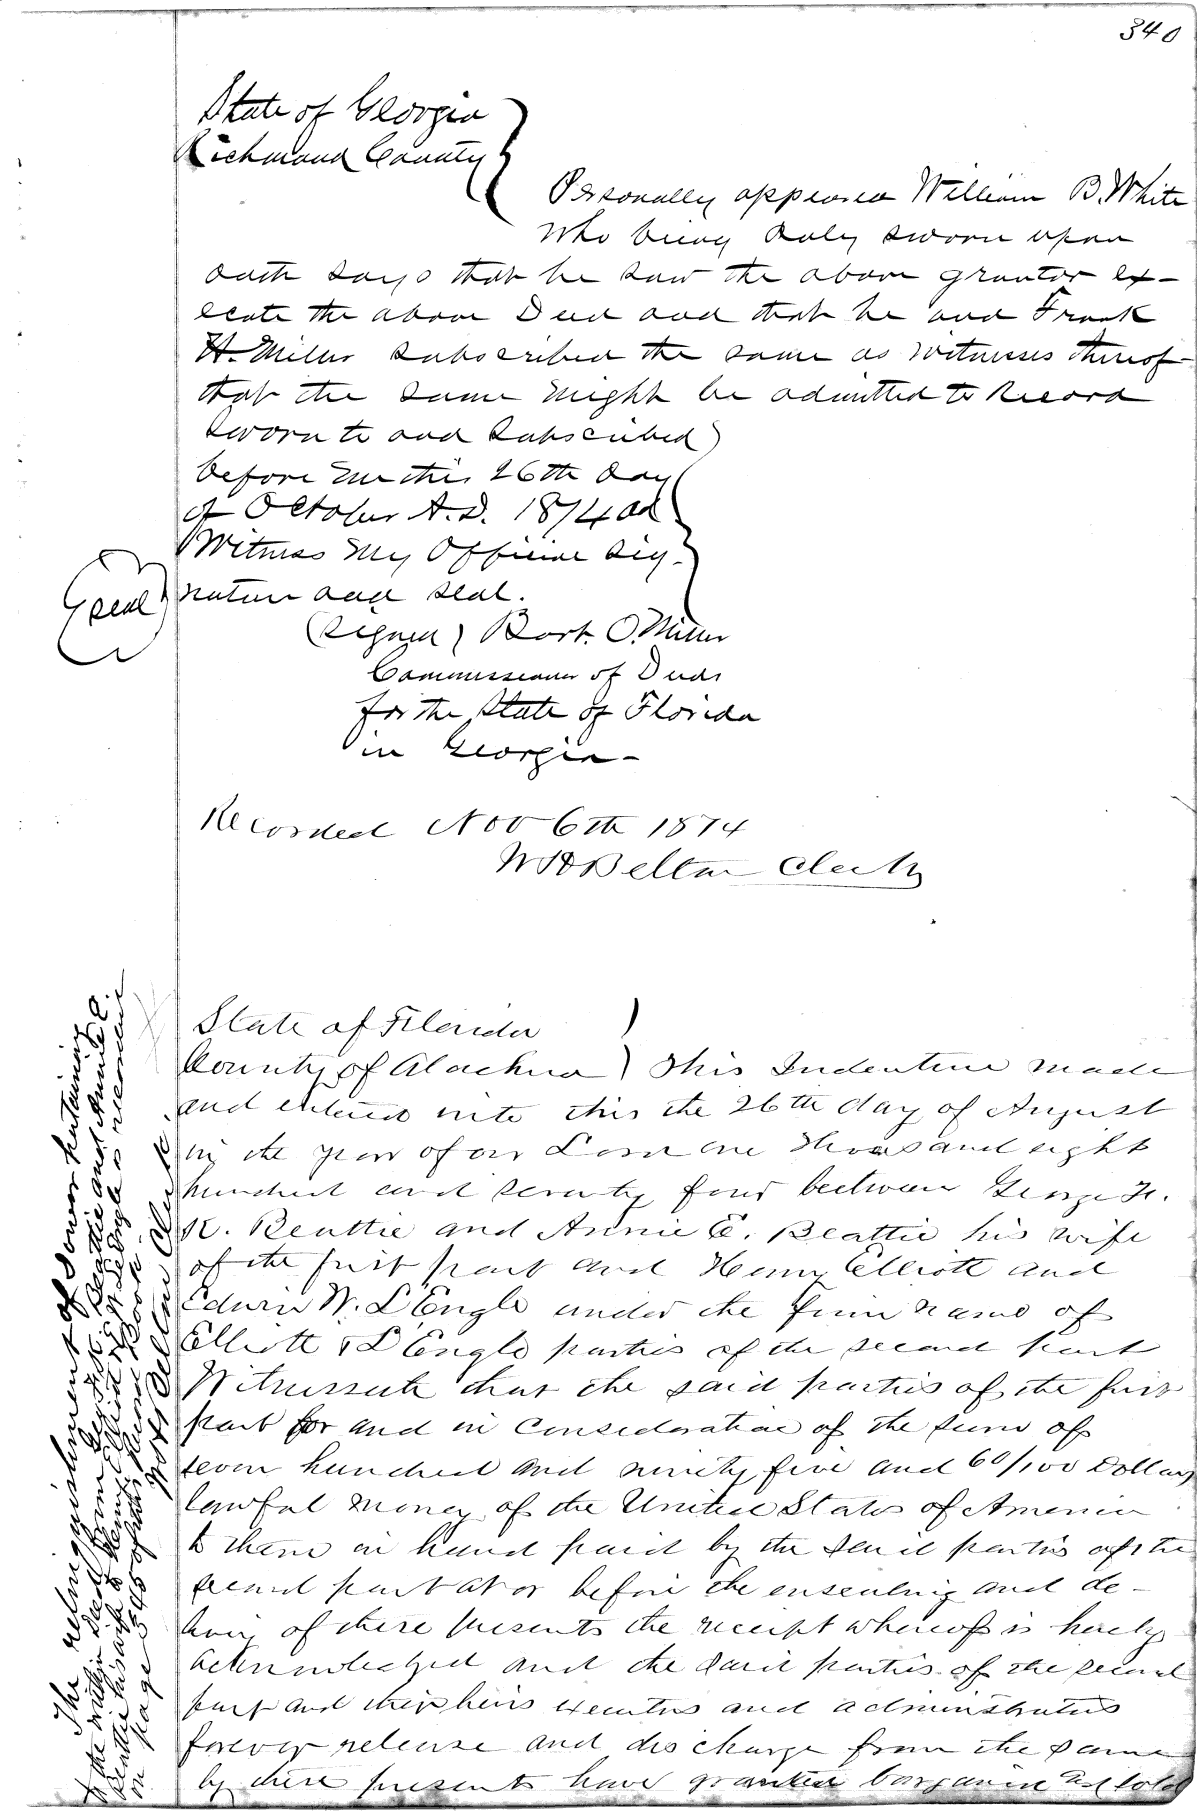 340
State of Georgia
Richmond County
Personally appeared William B. White
who being duly sworn upon
oath says that he saw the above grantor ex-
ecute the above Deed and that he and Frank
H. Miller subscribed the same as witnesses thereof
that the same might be admitted to Record
Sworn to and subscribed
before me this 26th day
of October A.D. 1874 as
Witness my Official sig-
nature and seal.
(seal)
(signed) Bart. O. Miller
Commissioner of Deeds
for the State of Florida
in Georgia-
Recorded Nov 6th 1874
W H Belton Clerk
State of Florida
County of Alachua ) This Indenture made
and entered into this the 26th day of August
in the year of our Lord one thousand eight
hundred and seventy four between George H.
K. Beattie and Annie E. Beattie his wife
of the first part and Henry Elliott and
Edwin W. L'Engle under the firm name of
Elliott & L'Engle parties of the second part
Witnesseth that the said parties of the first
part for and in consideration of the sum of
seven hundred and ninety five and 60/100 Dollars
lawful money of the United States of America
to them in hand paid by the said parties of the
second part at or before the ensealing and de-
livery of these presents the receipt whereof is hereby
acknowledged and the said parties of the second
part and their heirs executors and administrators
forever release and discharge from the same
by these presents have granted bargained and sold
The relinquishment of dower pertaining
to the within deed from Beattie and Annie E.
Beattie his wife to Henry Elliott L'Engle is recorded
on page 345 of this Record Book
W H Belton Clerk